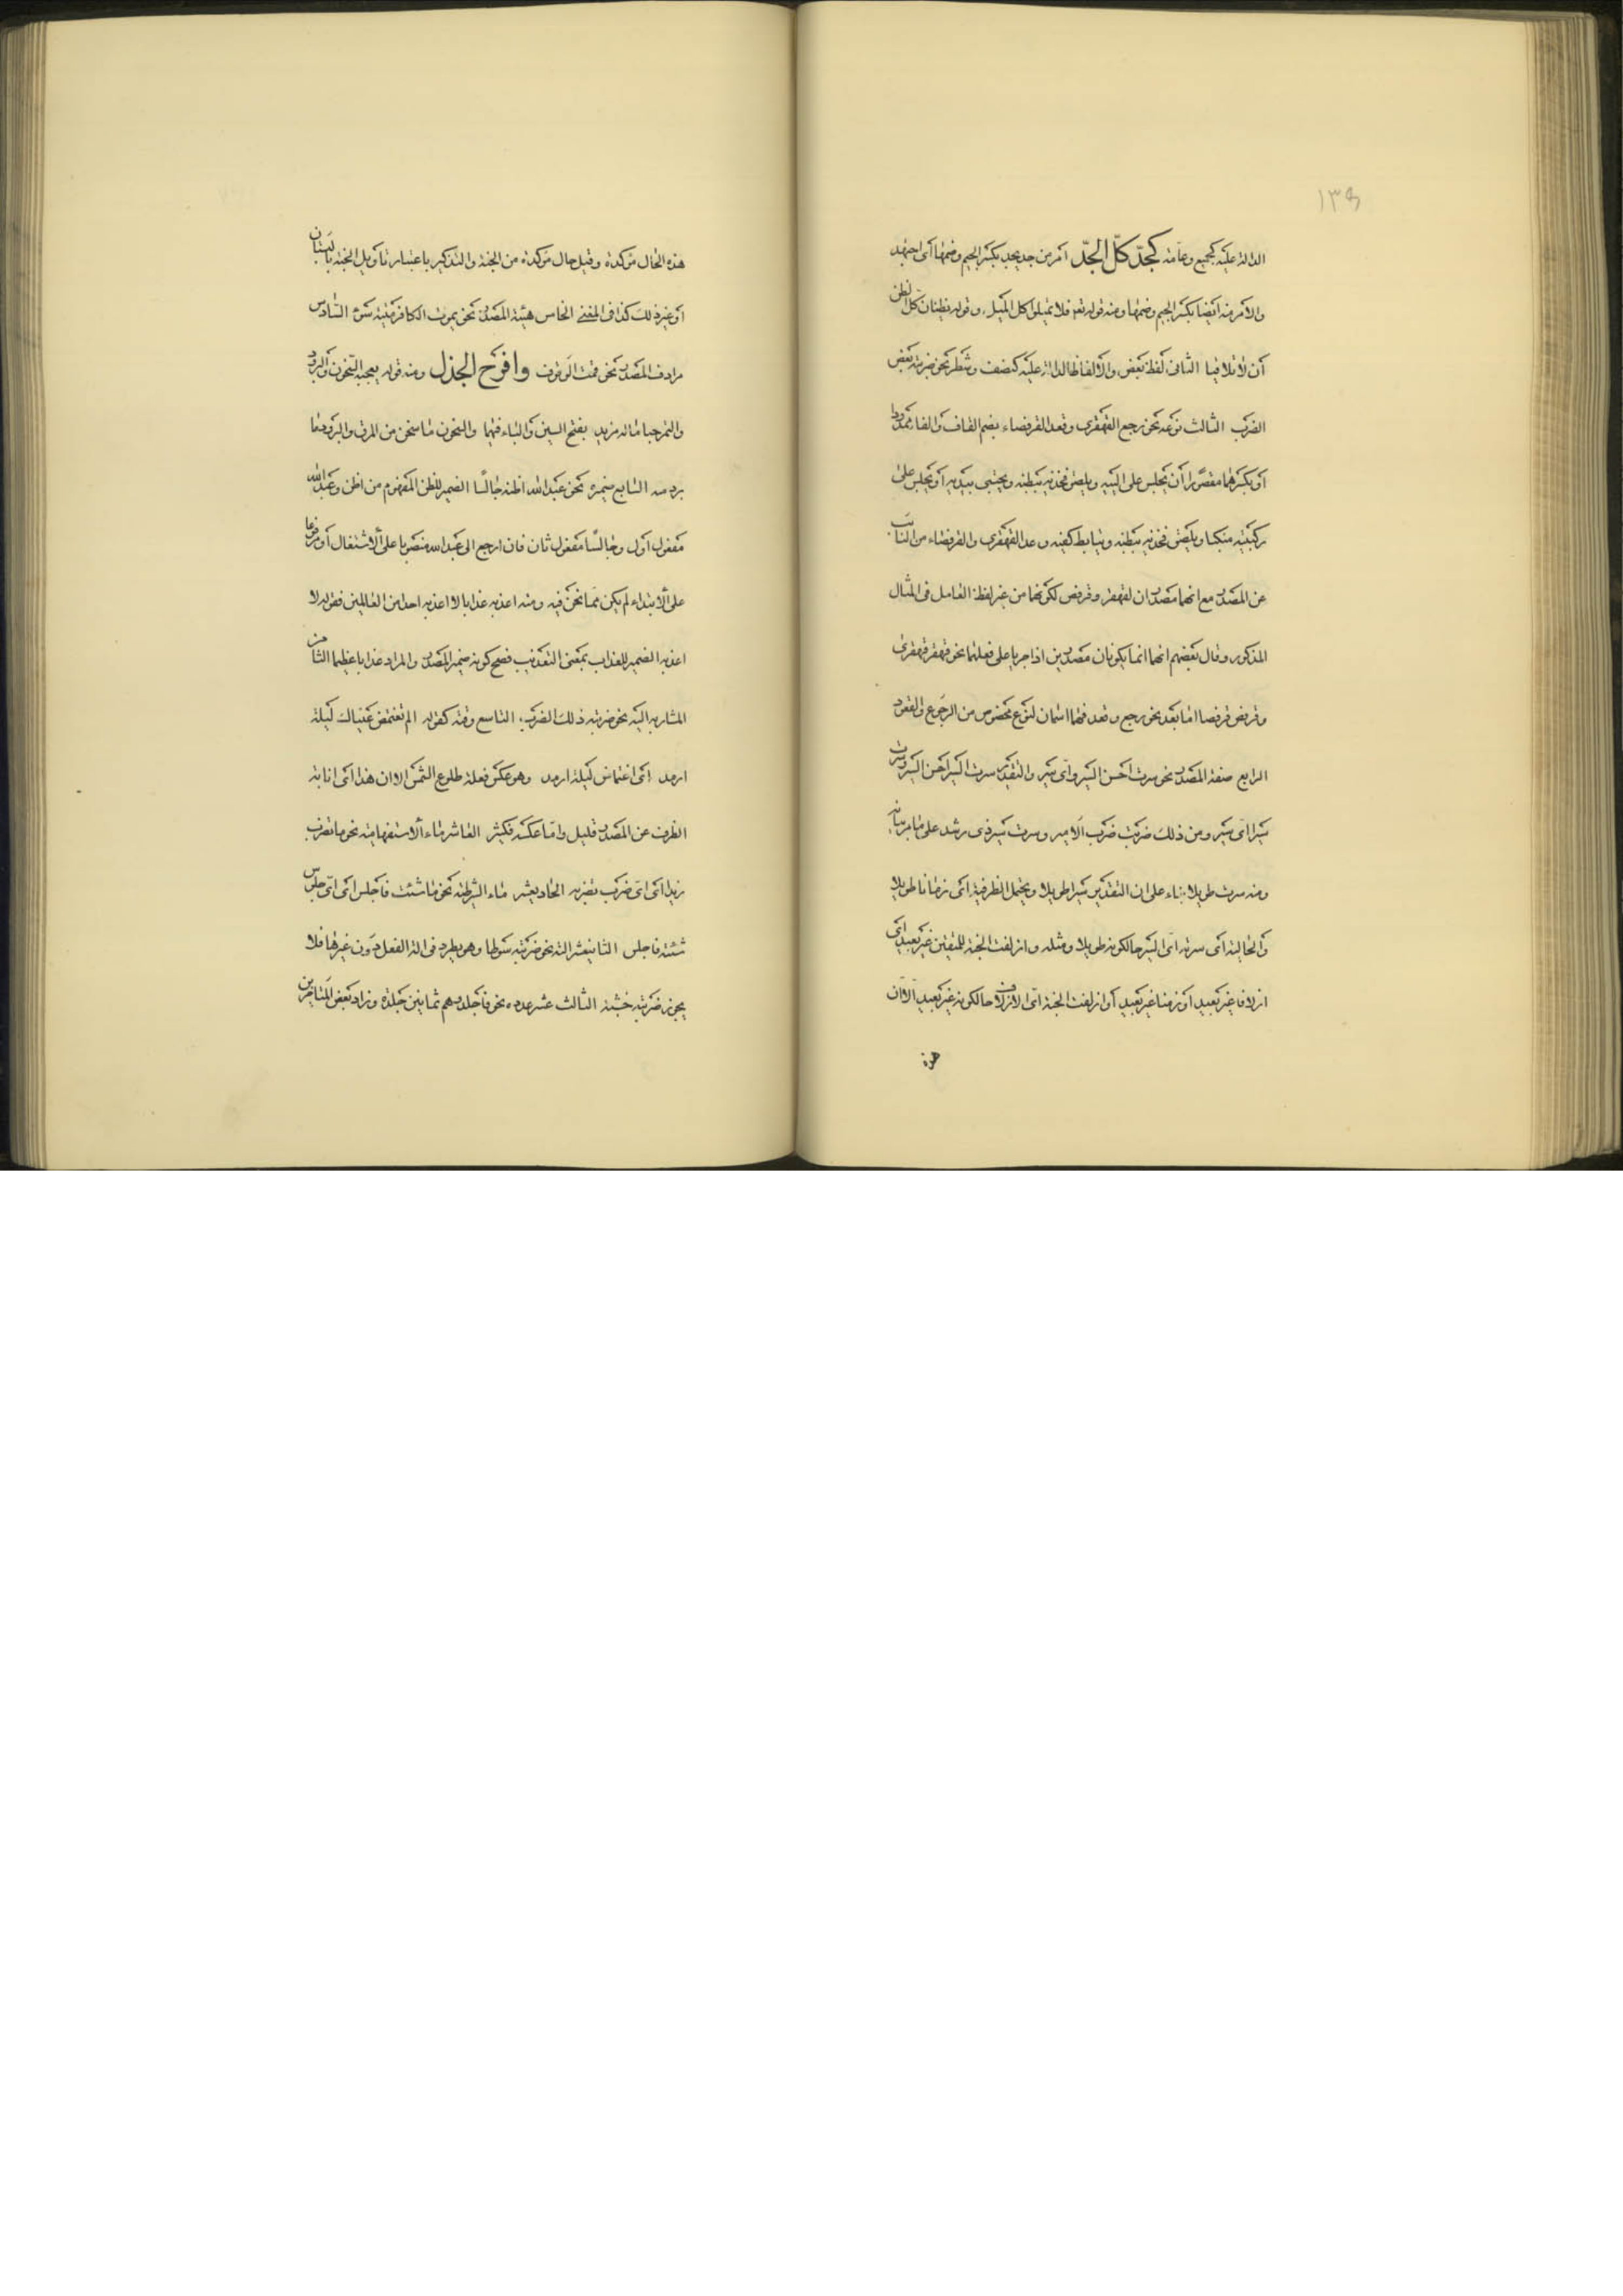 ١٣٩
الدالة عليه كجميع وعامة كجدّ كلّ الجدّ امر من جد يجد بكسر الجيم وضمها اى اجتهد
والامر منه ايضا بكسر الجيم وضمها ومنه قوله تعالى فلا تميلوا كل الميل وقوله يظنان كل الظن
أن لا تلاقيا الثانى لفظ بعض والالفاظ الدالة عليه كنصف وشطر نحو ضربته بعض
الضرب الثالث نوعه نحو رجع القهقرى وقعد القرفصاء بضم القاف والفاء ممدودا
او بكسرهما مقصورا أن يجلس على اليتيه ويلصق فخذيه ببطنه ويحتبى بيديه أو يجلس على
ركبتيه متكبا ويلصق فخذيه ببطنه ويتابط كفيه وعد القهقرى والقرفصاء من النائب
عن المصدر مع انهما مصدران لقهقر وقرفص لكونهما من غير لفظ العامل فى المثال
المذكور وقال بعضهم انهما انما يكونان مصدرين اذا جريا على فعلهما نحو قهقر قهقرى
وقرفص قرفصا اما بعد نحو رجع وقعد فهما اسمان لنوع مخصوص من الرجوع والقعود
الرابع صفة المصدر نحو سرت احسن السير واى سير والتقدير سرت السير احسن السير وسرت
سيرا اى سير ومن ذلك ضربت ضرب الامير وسرت سير ذى رشد على ما مر بيانه
ومنه سرت طويلا بناء على ان التقدير سيرا طويلا ويحتمل الظرفية اى زمانا طويلا
والحالية اى سرته اى السير حالكونه طويلا ومثله وازلفت الجنة للمتقين غير بعيد اى
ازلافا غير بعيد أو زمنا غير بعيد أو ازلفت الجنة اى الازلاف حالكونه غير بعيد الا ان
هذه
هذه الحال مؤكدة وقيل حال مؤكدة من الجنة والتذكير باعتبار تاويل الجنة بالبستان
أو غير ذلك كذا فى المغنى الخامس هيئة المصدر نحو يموت الكافر ميتة سوء السادس
مرادف المصدر نحو قمت الوقوف وافرح الجذل ومنه قوله يعجبه السخون والبرود
والتمر حبا ما له مزيد بفتح السين والباء فيهما والسخون ما سخن من المرق والبرود ما
برد منه السابع ضميره نحو عبد الله اظنه جالسا الضمير للظن المفهوم من اظن وعبد الله
مفعول اول وجالسا مفعول ثان فان ارجع الى عبد الله منصوبا على الاشتغال أو مرفوعا
على الابتداء لم يكن مما نحن فيه ومنه اعذبه عذابا لا اعذبه احدا من العالمين فقوله لا
اعذبه الضمير للعذاب بمعنى التعذيب فصح كونه ضمير المصدر والمراد عذابا عظيما الثامن
المشار به اليه نحو ضربته ذلك الضرب، التاسع وقته كقوله الم تغتمض عيناك ليلة
ارمد اى اغتماض ليلة ارمد وهو عكس فعلته طلوع الشمس الا ان هذا اى انابة
الظرف عن المصدر قليل واما عكسه فكثير العاشر ماء الاستفهامية نحو ما تضرب
زيدا اى اى ضرب تضربه الحاديعشر ماء الشرطية نحو ما شئت فاجلس اى اى جلوس
شئته فاجلس الثانيعشر الته نحو ضربته سوطا وهو يطرد فى الة الفعل دون غيرها فلا
يجوز ضربته خشبة الثالث عشر عدده نحو فاجلدوهم ثمانين جلدة وزاد بعض المتاخرين